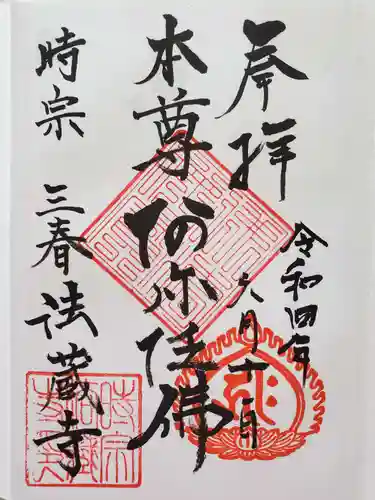 奉拝
令和四年
六月十一日
本尊阿弥陀佛
時宗 三春 法蔵寺